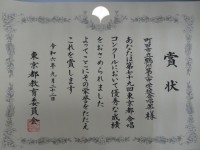 賞状
町田市立鶴川第二中学校合唱部様
あなたは第七十九回東京都合唱
コンクールにおいて優秀な成績
をおさめられました
よってここにその栄誉をたたえ
これを賞します
令和六年九月二十一日
東京都教育委員会